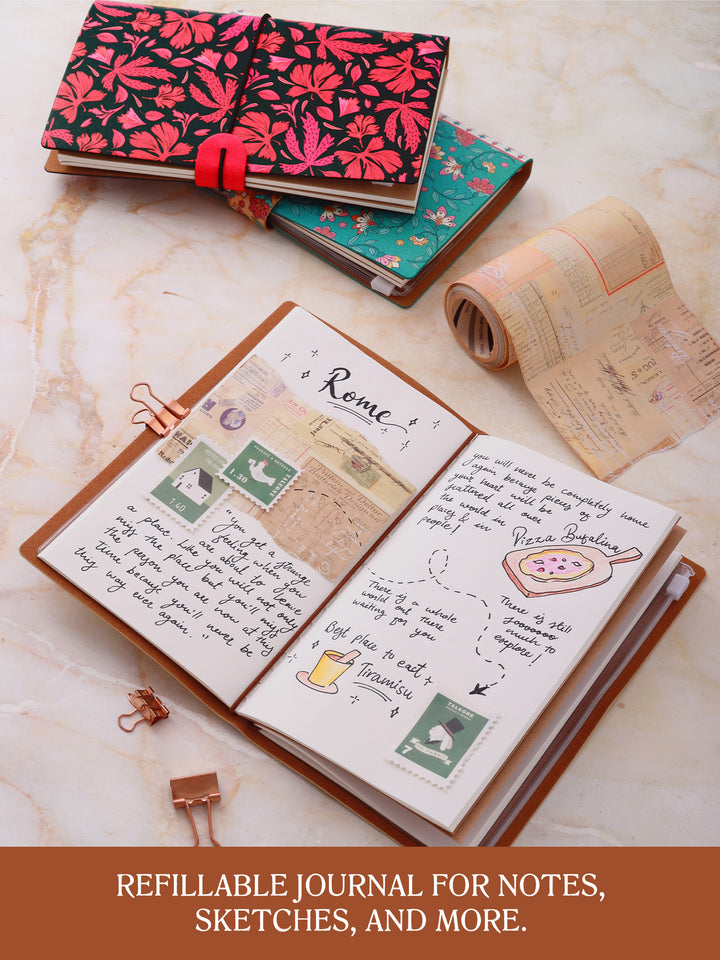 Rome
PROJECT & RESERVE
TALEGHE
1.30
1.40
"You get a strange
feeling when you
are about to leave
a place. Like you will not only
miss the place but you'll miss
the person you are now at this
time because you'll never be
this way ever again."
you will never be completely home
again because pieces of
your heart will be
scattered all over
the world in
places & in
people!
Pizza Bufalina
There is a whole
world out there
waiting for you
There is still
much to
explore!
Best place to east
Tiramisu
TALEGHE
7
REFILLABLE JOURNAL FOR NOTES,
SKETCHES, AND MORE.